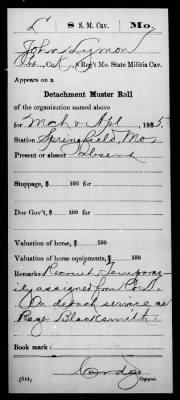 L | 8 S. M. Cav. | Mo.
John Lymon
Co. K, 8 Reg't Mo. State Militia Cav.
Appears on a
Detachment Muster Roll
of the organization named above
for Mch & Apl, 1865.
Station Springfield Mo.
Present or absent Absent
Stoppage, $ 100 for
Due Gov't, $ 100 for
Valuation of horse, $ 100
Valuation of horse equipments, $ 100
Remarks Recruit Temporar-
ily assigned from
On detach service as
Reg Blacksmith.
Book mark:
(344) Copyist.